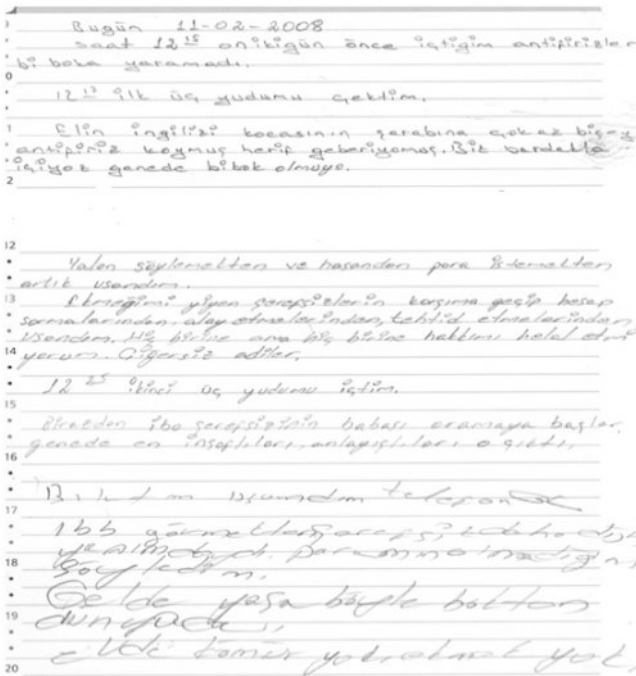 Bugün 11-02-2008
saat 12 15 onikigün önce içtiğim antifirizler
bi boka yaramadı.
12 17 ilk üç yudumu çektim.
Elin ingilizi kocasının şarabına çok az bişey
antifiriz koymuş herif geberiyomuş. Biz bardakla
içiyoz genede bibok olmuyo.
12
Yalan söylemekten ve hasandan para istemekten
artık usandım.
13
Ekmeğimi yiyen şerefsizlerin karşıma geçip hesap
sormalarından, alay etmelerinden, tehtid etmelerinden
usandım. Hiç birine ama hiç birine hakkımı helal etmi
14
yorum. Ciğersiz adiler.
12 25 ikinci üç yudumu içtim.
15
Birazdan ibo şerefsizinin babası aramaya başlar.
genede en insaflıları, anlayışlıları o çıktı.
16
17
18
söyledim.
Gelde yaşa böyle battan
19
dünyada
Evde kömür yok, ekmek yok,
20